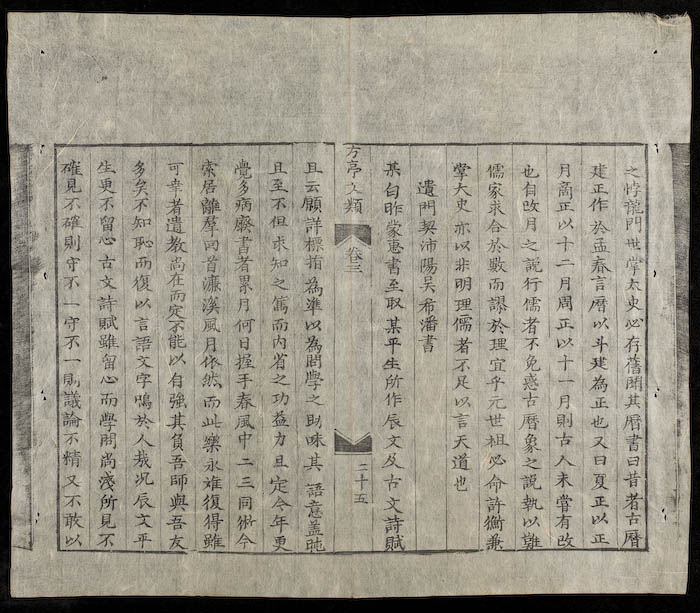 之悖龍門世掌太史必存舊聞其曆書曰昔者古曆
建正作於孟春言曆以斗建為正也又曰夏正以正
月商正以十二月周正以十一月則古人未嘗有改
也自改月之說行儒者不免惑古曆象之說執以難
儒家求合於數而謬於理宜乎元世祖必命許衡兼
掌大史亦以非明理儒者不足以言天道也
遺門契沛陽吳希潘書
某白昨蒙惠書至取某平生所作辰文及古文詩賦
方亭文類
卷三
二十五
且云願詳標指為準以為問學之助味其 語意盖肫
且至不但求知之篤而內省之功益力且定今年更
覺多病廢書者累月何日握手春風中二三同術今
索居離羣回首濂溪風月依然而此樂永難復得雖
可幸者遺教尚在而定不能以自強其負吾師與吾友
多矣不知恥而復以言語文字鳴於人哉况辰文平
生更不留心古文詩賦雖留心而學問尚淺所見不
確見不確則守不一守不一則議論不精又不敢以